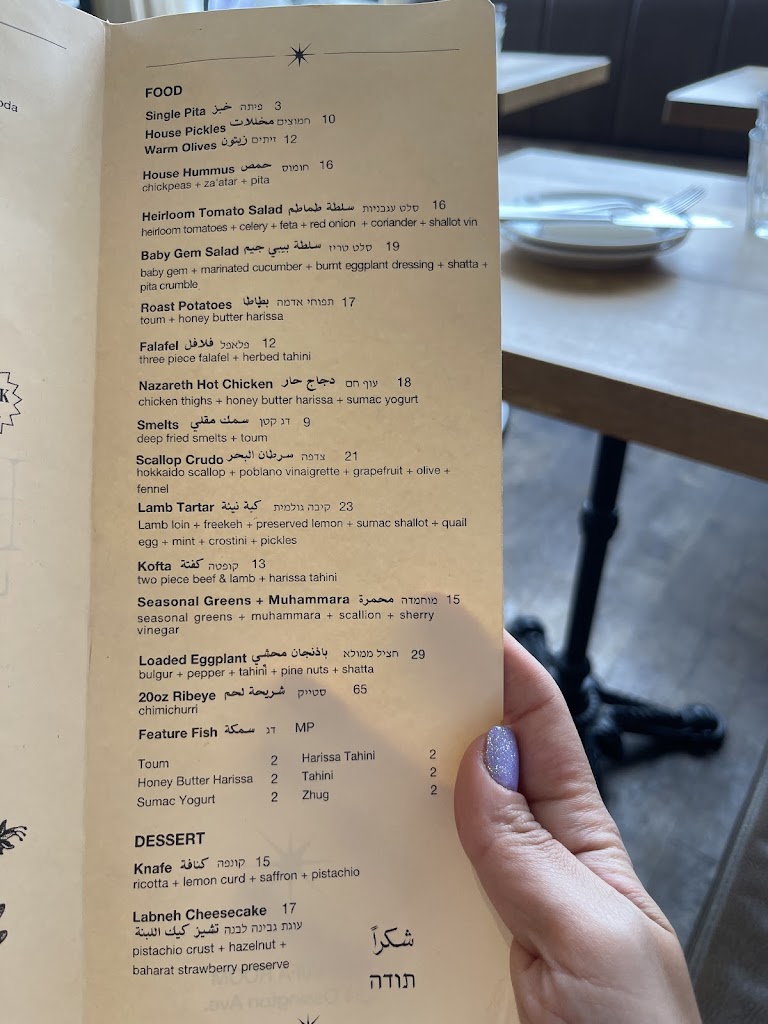 oda
K
FOOD
Single Pita خبز פיתה 3
House Pickles مخللات חמוצים 10
Warm Olives زيتون זיתים 12
House Hummus حمص חומוס 16
chickpeas + za'atar + pita
Heirloom Tomato Salad سلطة طماطم סלט עגבניות 16
heirloom tomatoes + celery + feta + red onion + coriander + shallot vin
Baby Gem Salad سلطة بيبي جيم סלט טריז 19
baby gem + marinated cucumber + burnt eggplant dressing + shatta +
pita crumble
Roast Potatoes بطاطا תפוחי אדמה 17
toum + honey butter harissa
Falafel فلافل פלאפל 12
three piece falafel + herbed tahini
Nazareth Hot Chicken دجاج حار עוף חם 18
chicken thighs + honey butter harissa + sumac yogurt
Smelts سمك مقلي דג קטן 9
deep fried smelts + toum
Scallop Crudo سرطان البحر צדפה 21
hokkaido scallop + poblano vinaigrette + grapefruit + olive +
fennel
Lamb Tartar كبة نيئة קיבה גולמית 23
Lamb loin + freekeh + preserved lemon + sumac shallot + quail
egg + mint + crostini + pickles
Kofta كفتة קופטה 13
two piece beef & lamb + harissa tahini
Seasonal Greens + Muhammara محمرة מוחמדה 15
seasonal greens + muhammara + scallion + sherry
vinegar
Loaded Eggplant باذنجان محشي חציל ממולא 29
bulgur + pepper + tahini + pine nuts + shatta
20oz Ribeye شريحة لحم סטייק 65
chimichurri
Feature Fish سمكة דג MP
Toum 2 Harissa Tahini 2
Honey Butter Harissa 2 Tahini 2
Sumac Yogurt 2 Zhug 2
DESSERT
Knafe كنافة קונפה 15
ricotta + lemon curd + saffron + pistachio
Labneh Cheesecake 17
تشيز كيك اللبنة עוגת גבינה לבנה
pistachio crust + hazelnut +
baharat strawberry preserve
شكراً
תודה